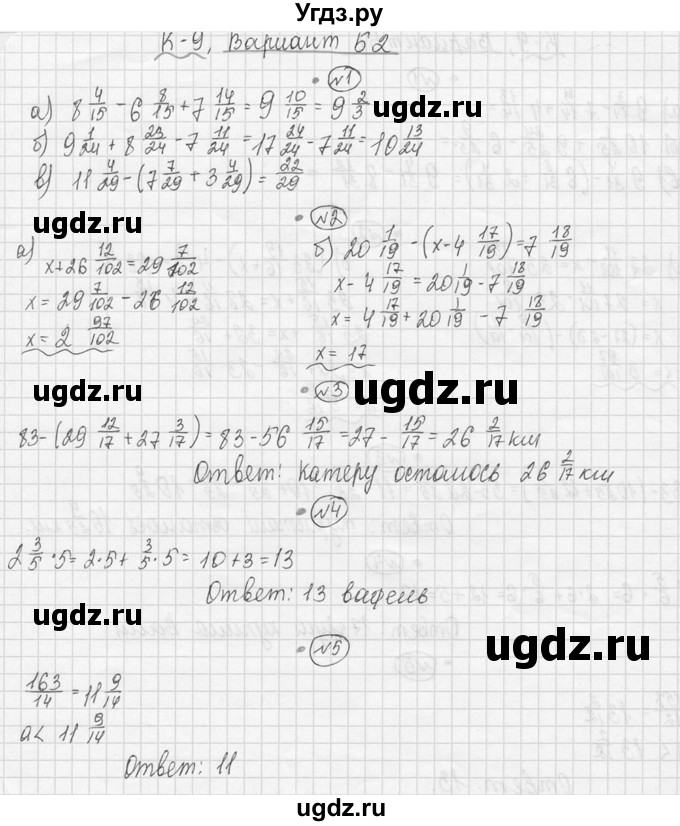 Угдз.ру
К-9, Вариант Б2
№1
а) 8 4/15 - 6 8/15 + 7 14/15 = 9 10/15 = 9 2/3
ugdz.ru
б) 9 1/24 + 8 23/24 - 7 11/24 = 17 24/24 - 7 11/24 = 10 13/24
в) 11 4/29 - (7 7/29 + 3 4/29) = 22/29
ugdz.ru
ugdz.ru
№2
а) x + 26 12/102 = 29 7/102
x = 29 7/102 - 26 12/102
x = 2 97/102
б) 20 1/19 - (x - 4 17/19) = 7 18/19
x - 4 17/19 = 20 1/19 - 7 18/19
x = 4 17/19 + 20 1/19 - 7 18/19
x = 17
ugdz.ru
№3
ugdz.ru
83 - (29 12/17 + 27 3/17) = 83 - 56 15/17 = 27 - 15/17 = 26 2/17 км
Ответ: катеру осталось 26 2/17 км
№4
2 3/5 · 5 = 2·5 + 3/5 · 5 = 10 + 3 = 13
Ответ: 13 вафель
ugdz.ru
№5
ugdz.ru
163/14 = 11 9/14
a < 11 9/14
Ответ: 11
ugdz.ru